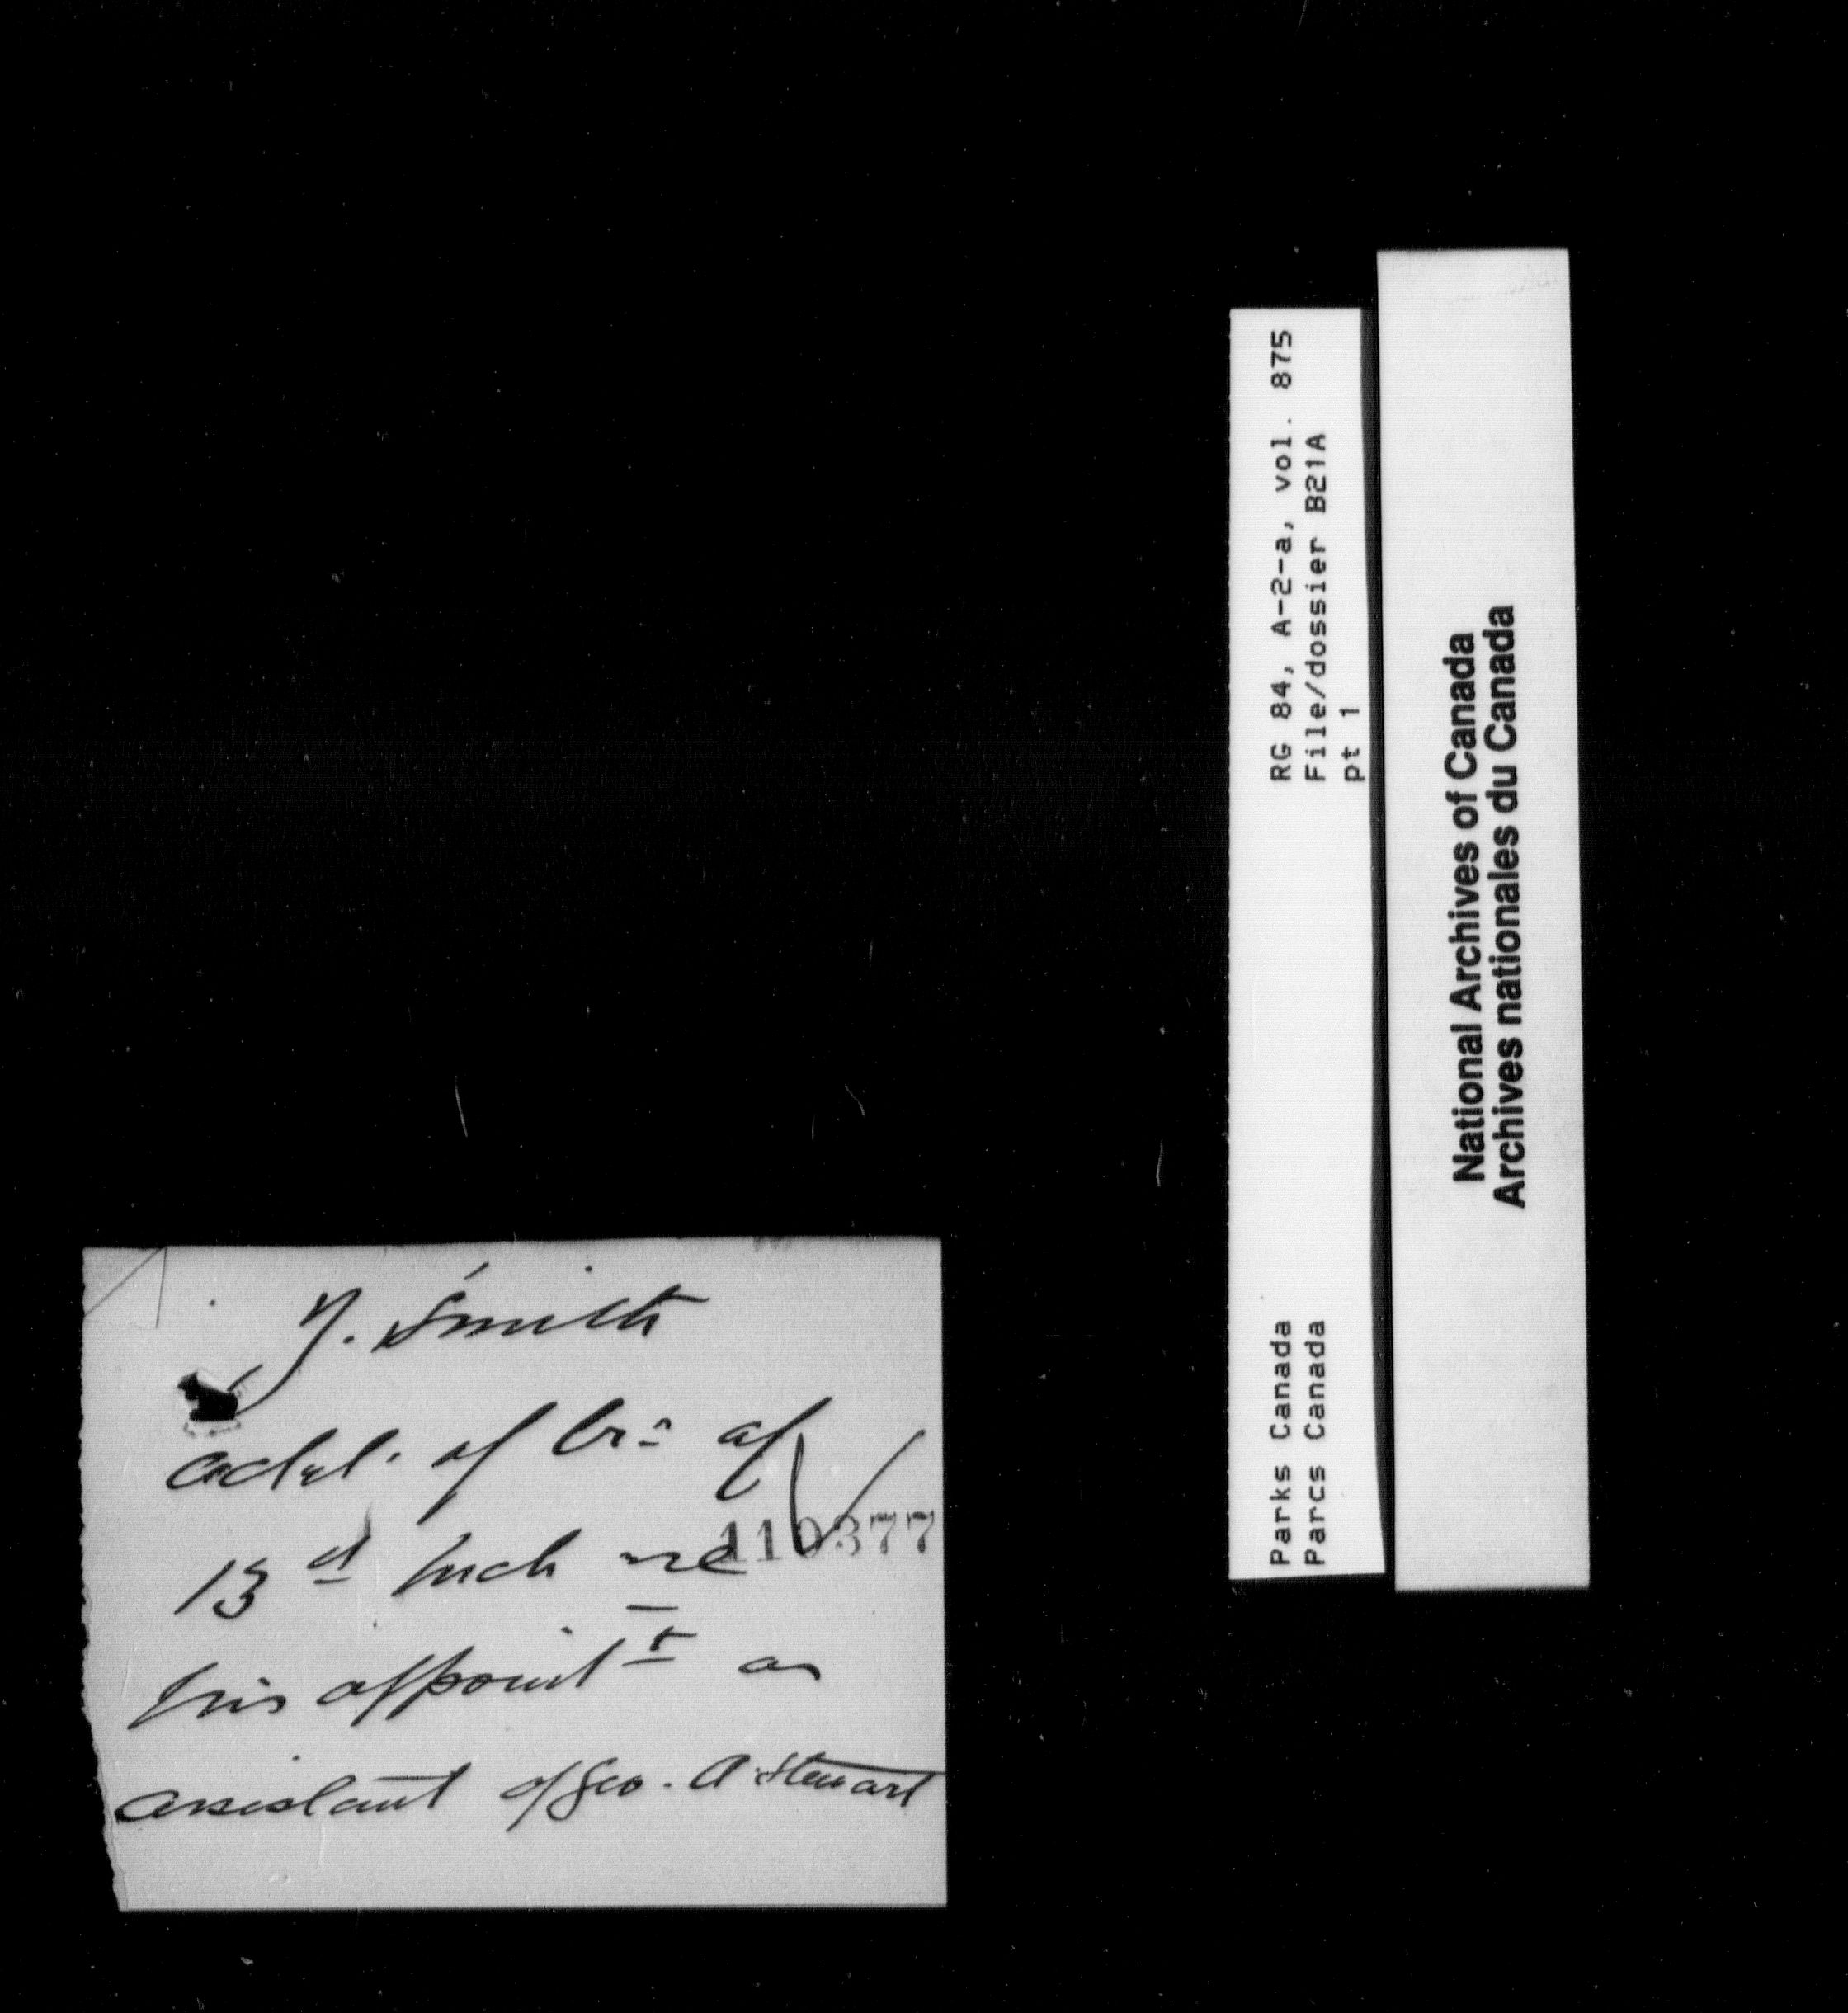 Y. Smith
of
110377
13 Inch re
his appoint t as
assistant of Geo. A. Stewart
Parks Canada RG 84, A-2-a, vol. 875
Parcs Canada File/dossier B21A
pt 1
National Archives of Canada
Archives nationales du Canada